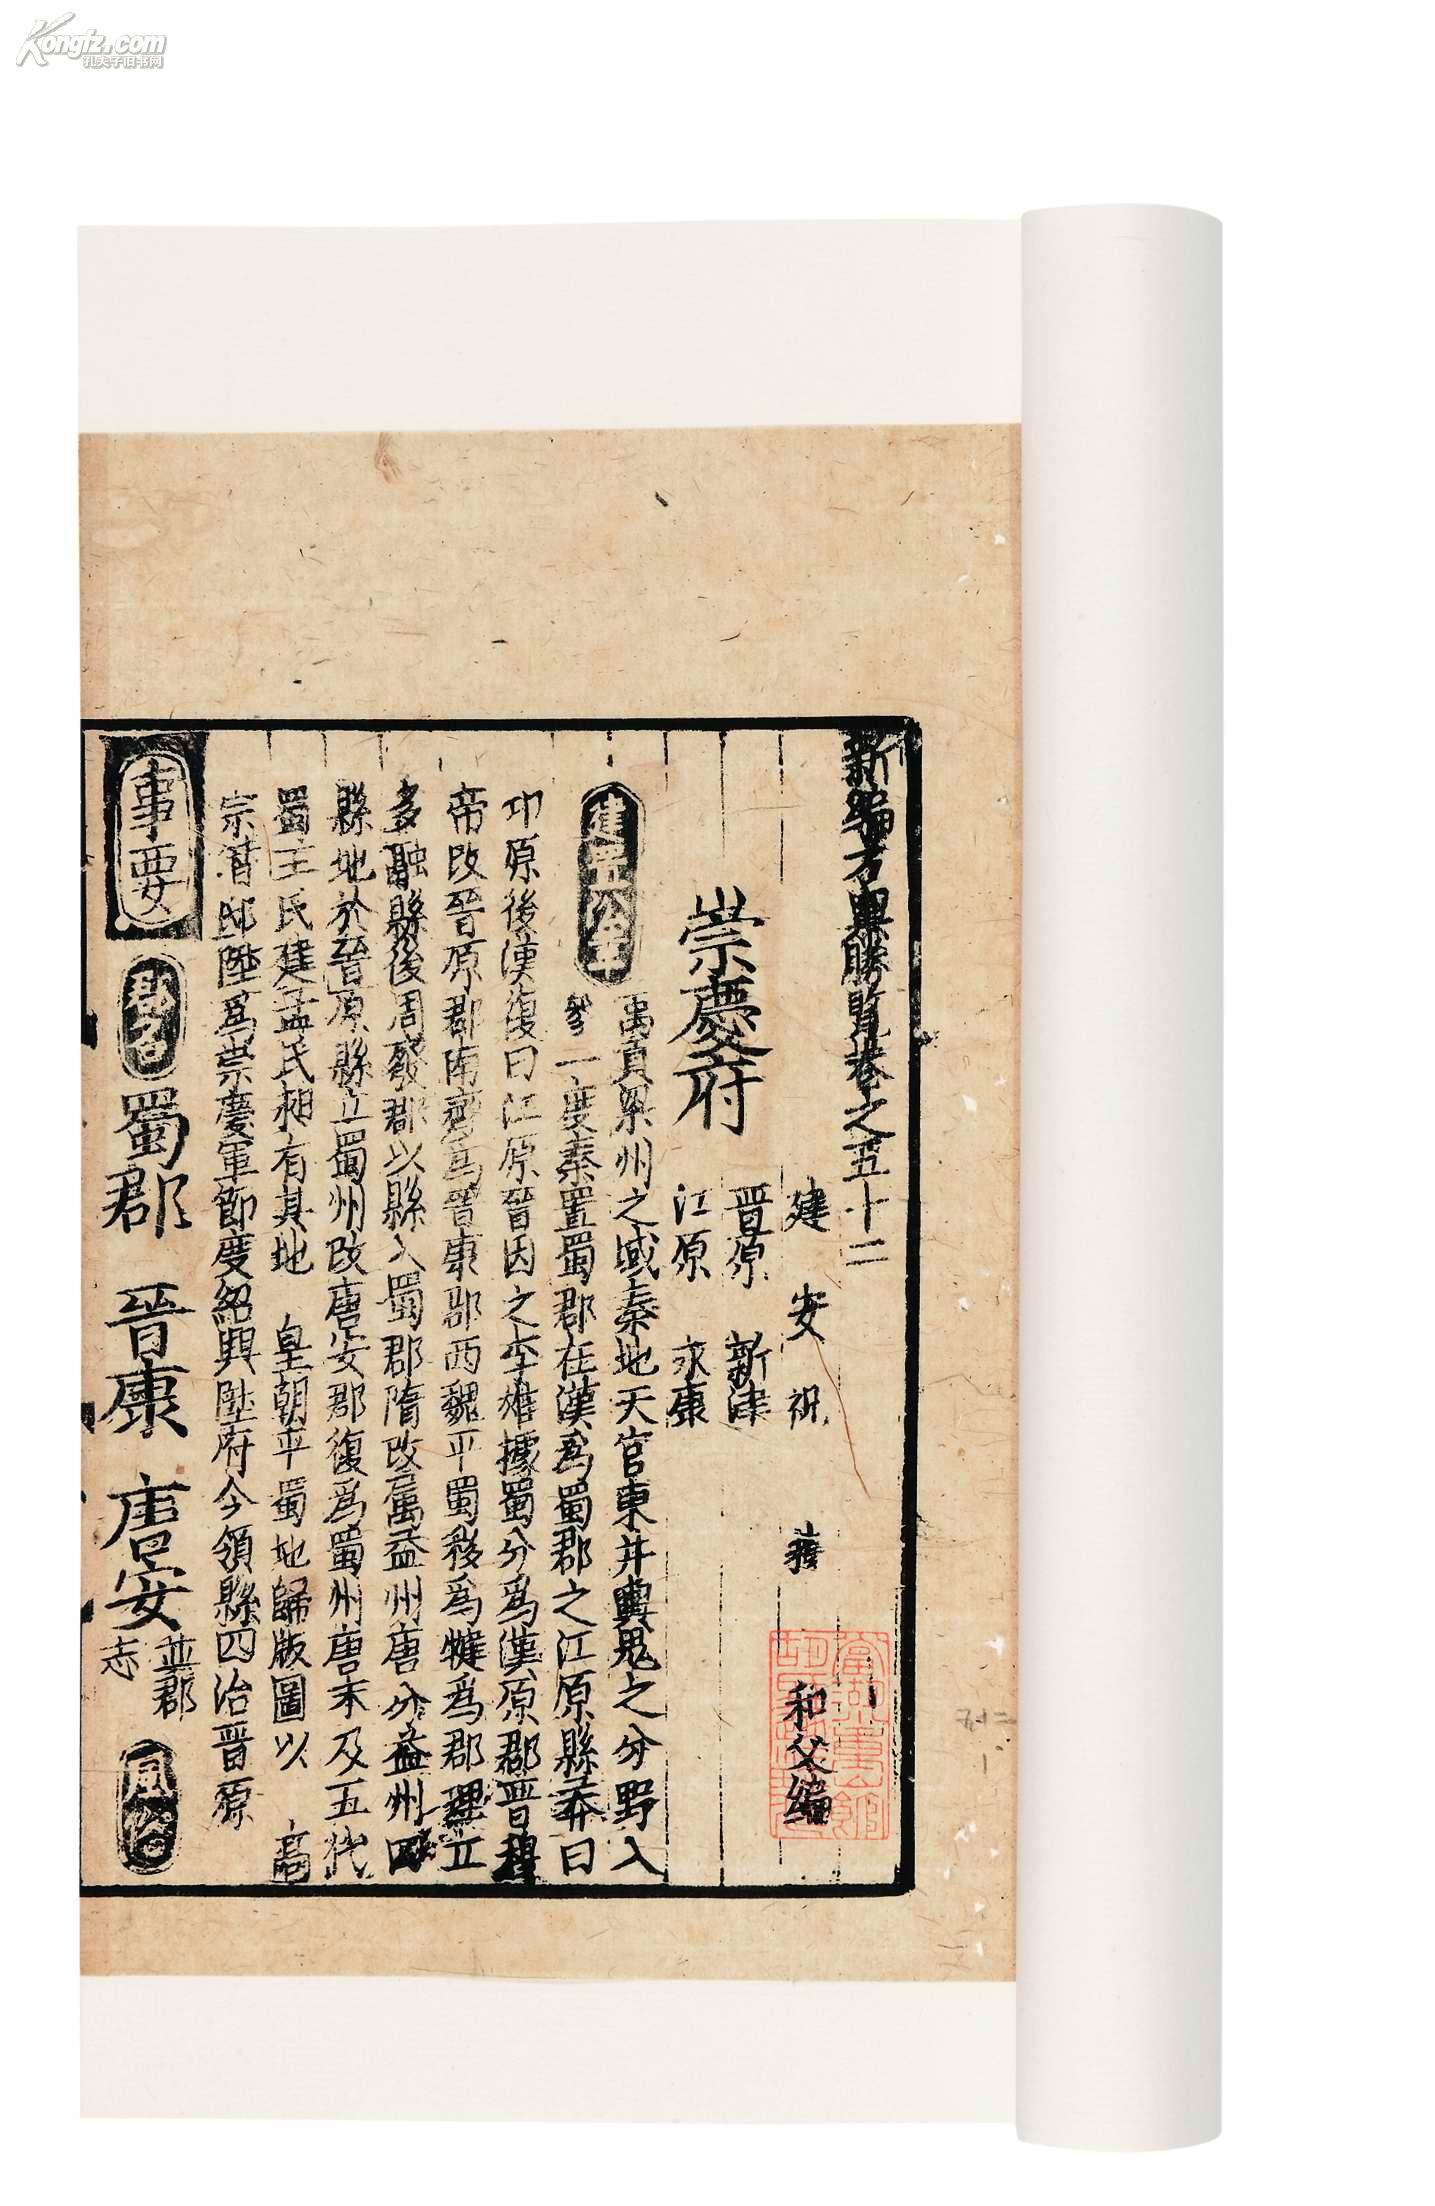 Kongfz.com
孔夫子旧书网
新編方輿勝覽卷之五十二
建安祝 穆 和父編
崇慶府
晋原 新津
江原 永康
建置沿革
禹貢梁州之域秦地天官東井輿鬼之分野入
參一度秦置蜀郡在漢為蜀郡之江原縣莽曰
邛原後漢復曰江原晉因之李雄據蜀分為漢原郡晋穆
帝改晉原郡南齊為晉康郡西魏平蜀移為犍為郡理立
多融縣後周廢郡以縣入蜀郡隋改属益州唐分益州四
縣地於晉原縣立蜀州改唐安郡復為蜀州唐末及五代
蜀王氏建孟氏相有其地 皇朝平蜀地歸版圖以 高
宗潜邸陞為崇慶軍節度紹興陞府今領縣四治晋原
事要
郡名
蜀郡 晉康 唐安
並郡
志
風俗
五十二